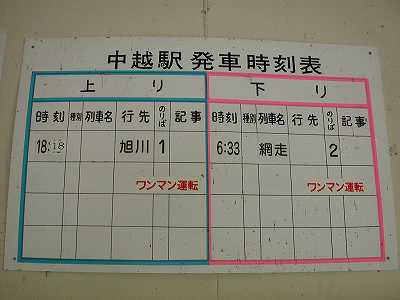 中越駅 発車時刻表
上り 下り
時刻 種別 列車名 行先 のりば 記事 時刻 種別 列車名 行先 のりば 記事
18:18 旭川 1 6:33 網走 2
ワンマン運転 ワンマン運転